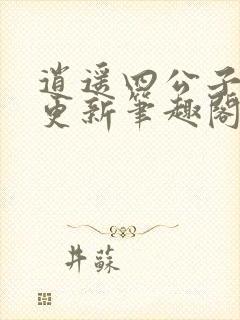 逍遥四公子
更新筆趣閣
井蘇